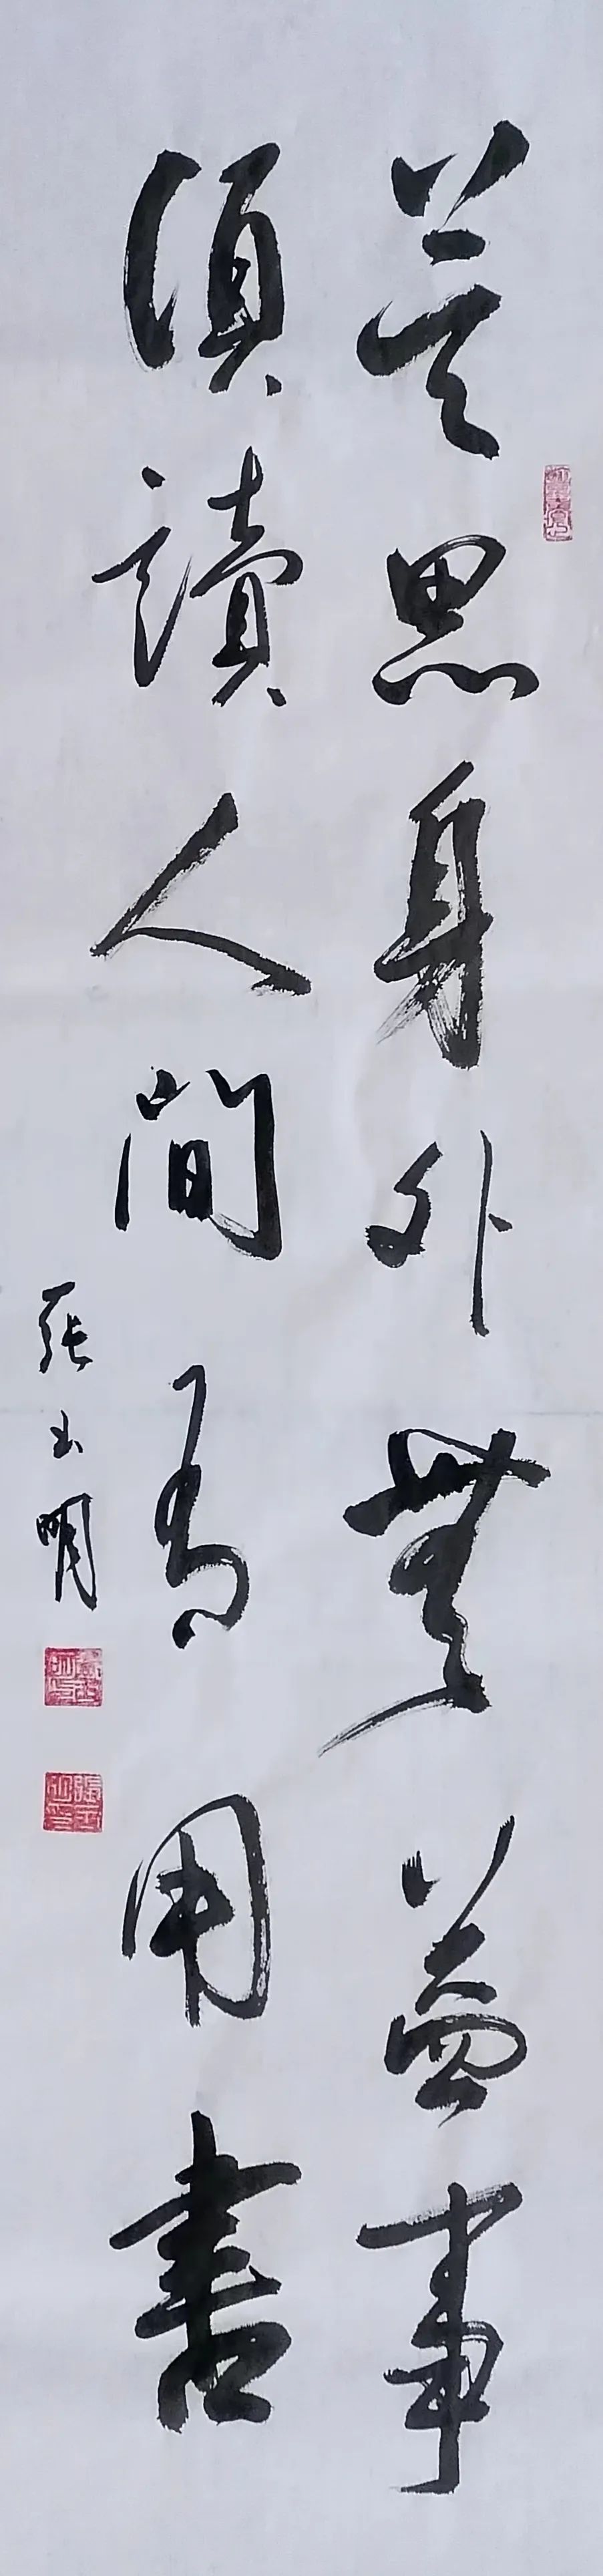 莫思身外無益事
須讀人間有用書
張玉明